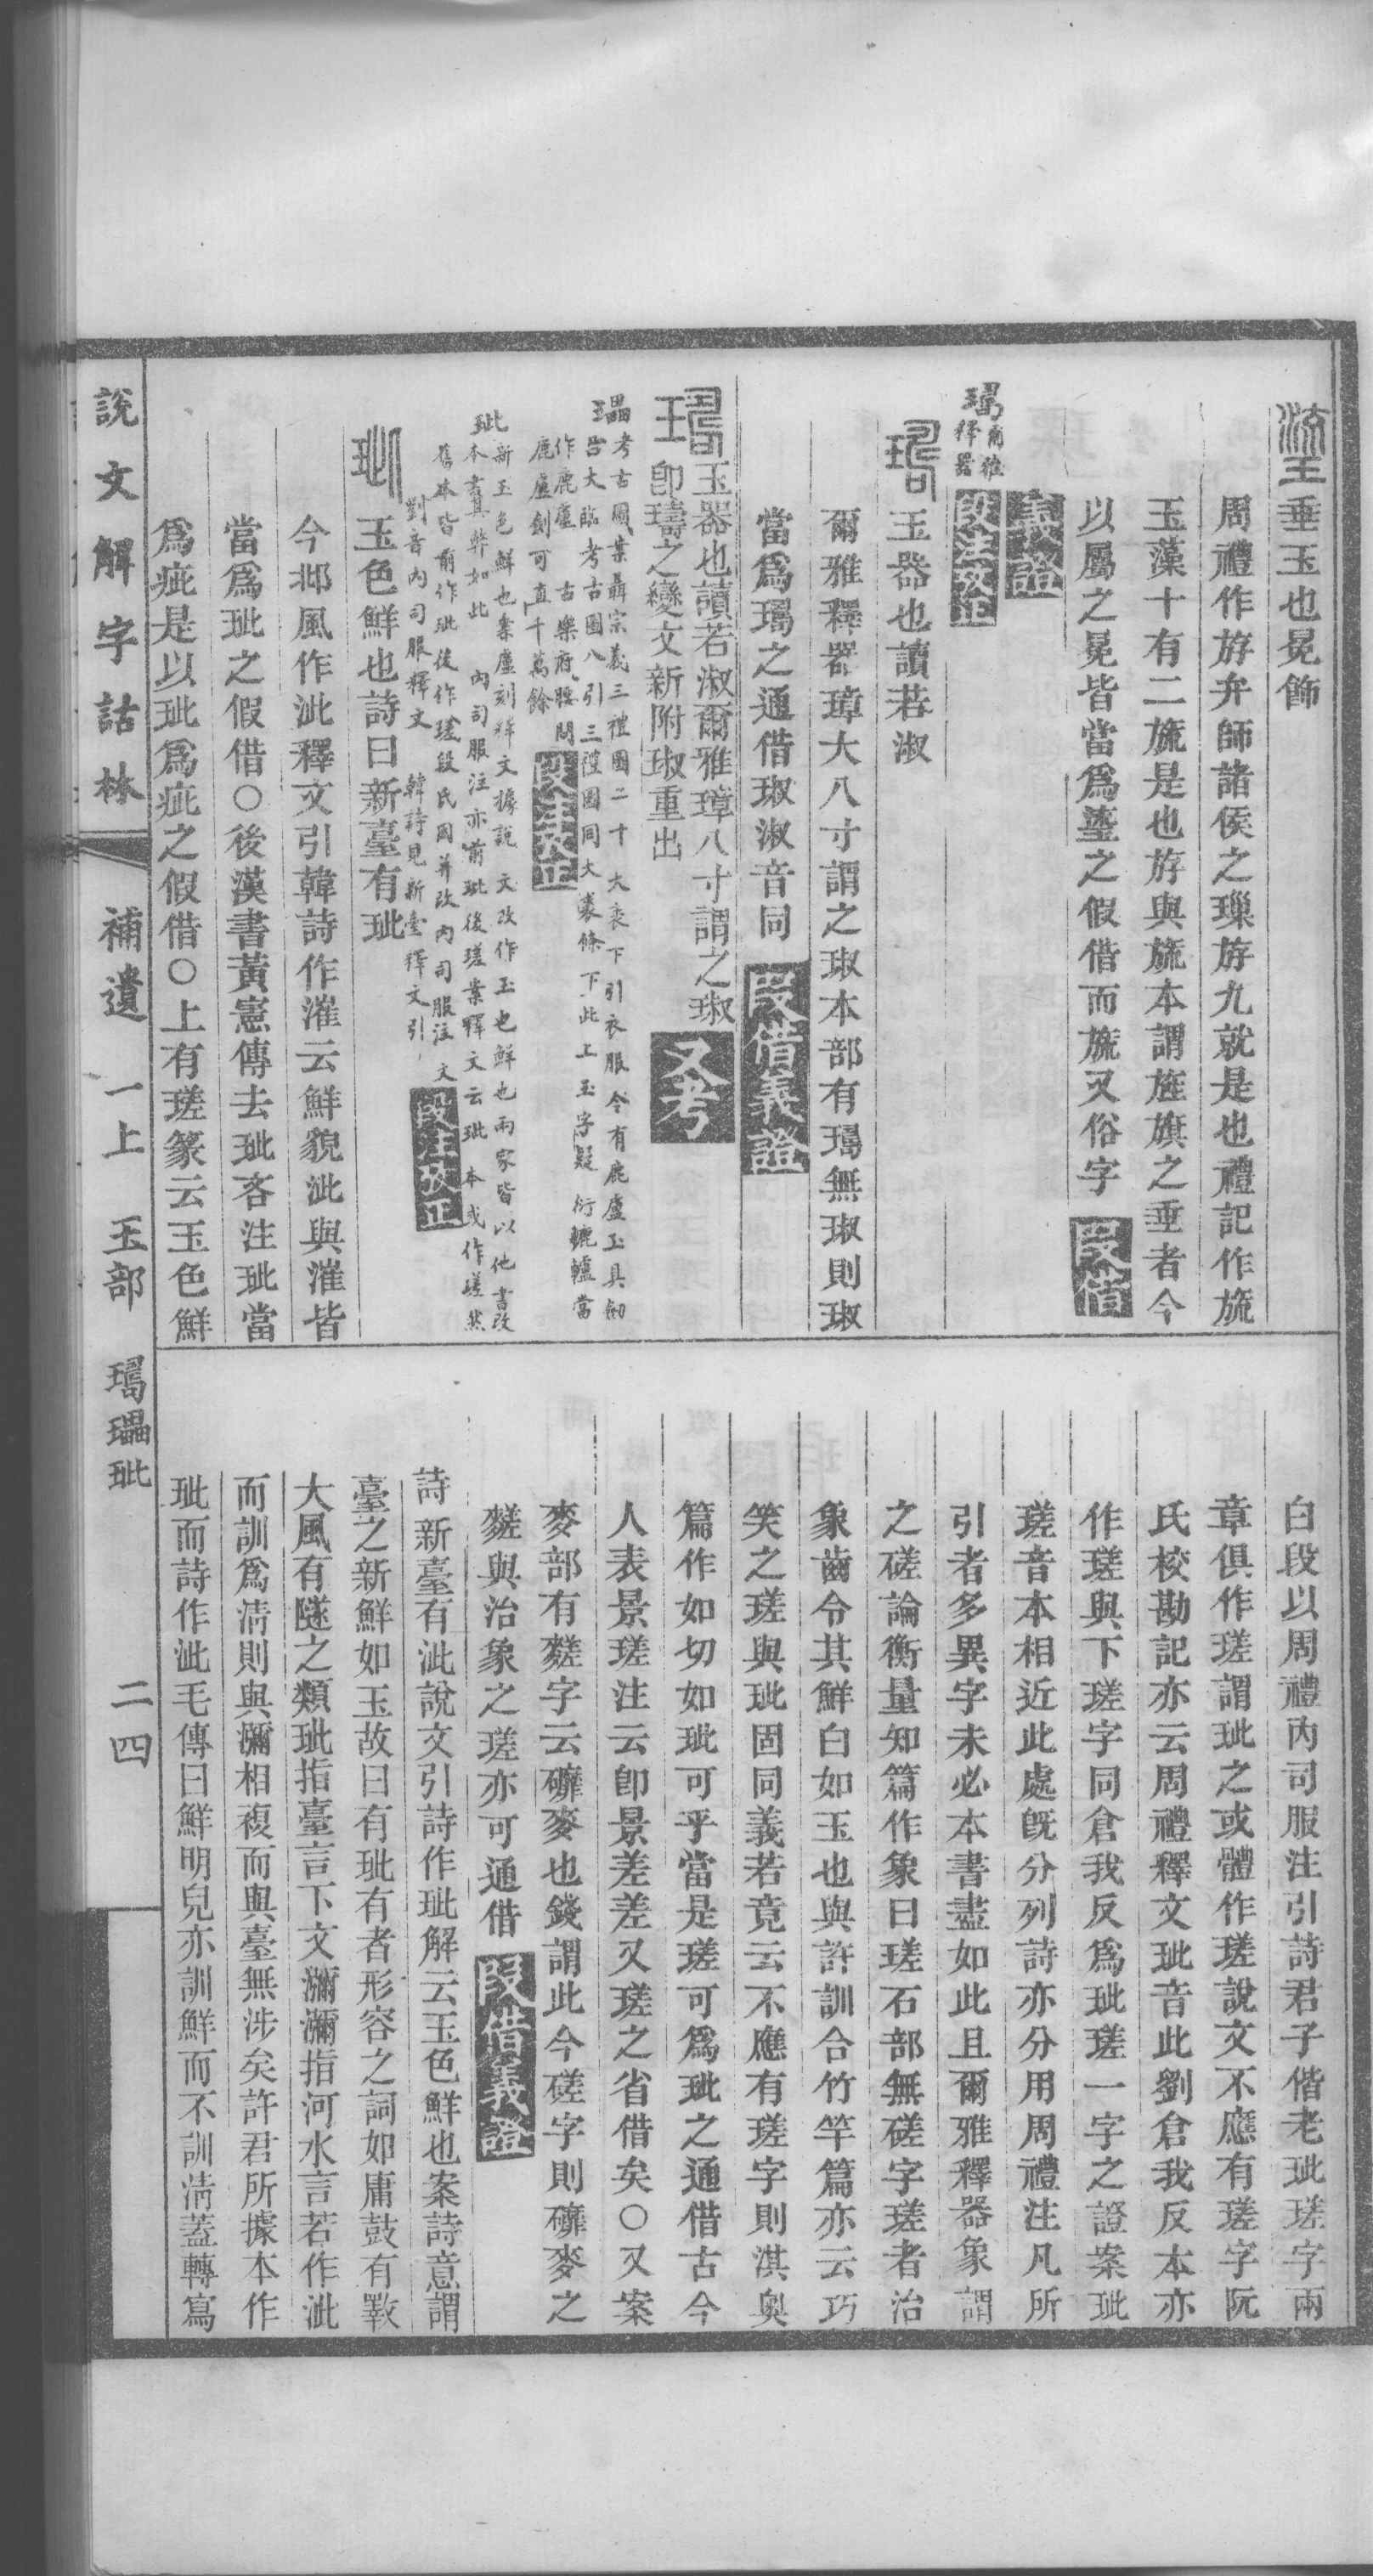 瑬垂玉也冕飾
周禮作斿弁師諸侯之璅斿九就是也禮記作旒
玉藻十有二旒是也斿與旒本謂旌旗之垂者今
以屬之冕皆當爲瑬之假借而旒又俗字 段借
義證
瓗爾雅釋器 段注攷正
玉器也讀若淑
爾雅釋器璋大八寸謂之琡本部有𤪌無琡則琡
當爲𤪌之通借琡淑音同 段借義證
玉器也讀若淑爾雅璋八寸謂之琡
卽璹之變文新附琡重出 又考
考古圖案聶宗義三禮圖二十 大裘下引衣服令有鹿盧玉具劒
呂大臨考古圖八引三禮圖同大裘條下此上玉字疑衍轆轤當
作鹿盧 古樂府腰間
鹿盧劍可直千萬餘 段注攷正
玼新玉色鮮也案盧刻釋文據說文改作玉也鮮也兩家皆以他書改
本書其弊如此 內司服注亦前玼後瑳案釋文云玼本或作瑳然
舊本皆前作玼後作瑳段氏因并改內司服注文
劉音內司服釋文 韓詩見新臺釋文引 段注攷正
玼 玉色鮮也詩曰新臺有玼
今邶風作泚釋文引韓詩作漼云鮮貌泚與漼皆
當爲玼之假借○後漢書黃憲傳去玼吝注玼當
爲疵是以玼爲疵之假借○上有瑳篆云玉色鮮
白段以周禮內司服注引詩君子偕老玼瑳字兩
章俱作瑳謂玼之或體作瑳說文不應有瑳字阮
氏校勘記亦云周禮釋文玼音此劉倉我反本亦
作瑳與下瑳字同倉我反爲玼瑳一字之證案玼
瑳音本相近此處旣分列詩亦分用周禮注凡所
引者多異字未必本書盡如此且爾雅釋器象謂
之磋論衡量知篇作象曰瑳石部無磋字瑳者治
象齒令其鮮白如玉也與許訓合竹竿篇亦云巧
笑之瑳與玼固同義若竟云不應有瑳字則淇奧
篇作如切如玼可乎當是瑳可爲玼之通借古今
人表景瑳注云卽景差差又瑳之省借矣○又案
麥部有䴾字云礳麥也錢謂此今磋字則礳麥之
䴾與治象之瑳亦可通借 段借義證
詩新臺有泚說文引詩作玼解云玉色鮮也案詩意謂
臺之新鮮如玉故曰有玼有者形容之詞如庸鼓有斁
大風有隧之類玼指臺言下文瀰瀰指河水言若作泚
而訓爲淸則與瀰相複而與臺無涉矣許君所據本作
玼而詩作泚毛傳曰鮮明皃亦訓鮮而不訓淸蓋轉寫
說文解字詁林 補遺 一上 玉部 𤪌瑥玼 二四